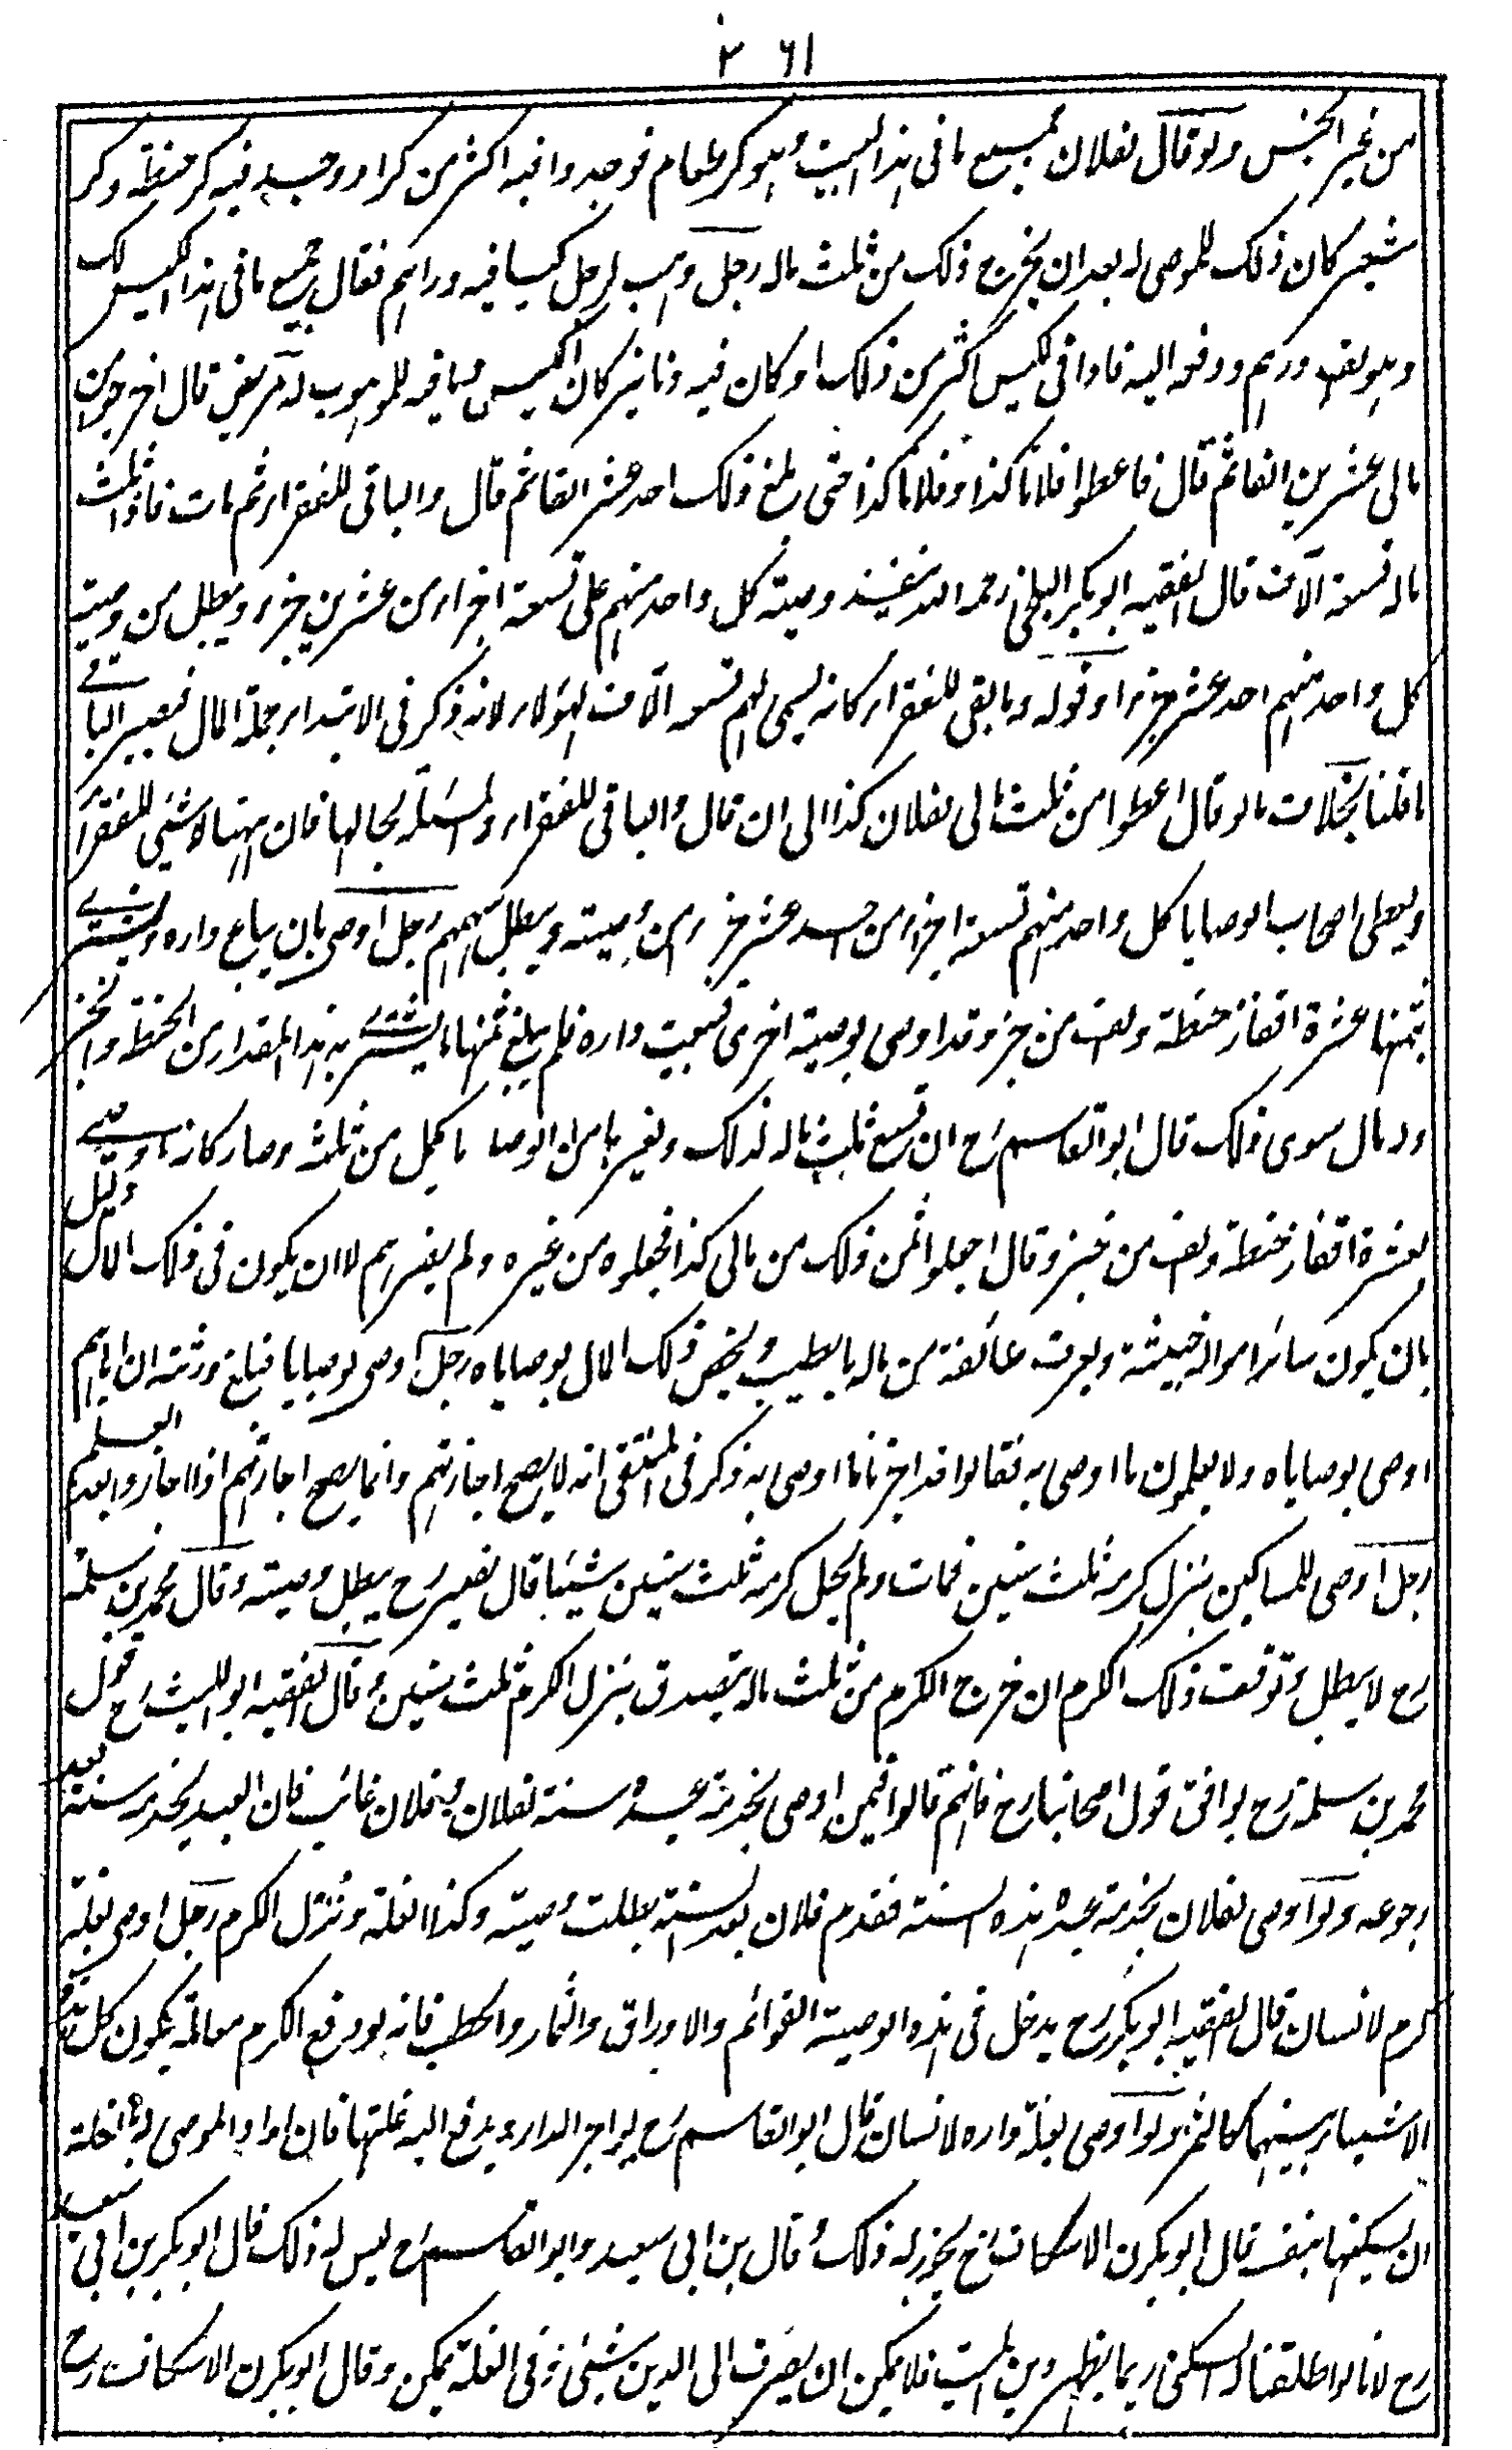 ٣٦١
من غير الجنس ولو قال لفلان جميع ما في هذا البيت وهو كر طعام فوجدوا فيه اكثر من كر او وجد فيه كر حنطة وكر
شعير كان ذلك للموصى له بعد ان يخرج ذلك من ثلث ماله رجل وهب لرجل كيسا فيه دراهم فقال جميع ما في هذا الكيس لك
وهو الف درهم ودفعه اليه فاذا في الكيس اكثر من ذلك او كان فيه دنانير كان الكيس وما فيه للموهوب له مريض قال اخرجوا من
مالي عشرين الفا ثم قال فاعطوا فلانا كذا وفلانا كذا حتى بلغ ذلك احد عشر الفا ثم قال والباقي للفقراء ثم مات فاذا ثلث
ماله تسعة آلاف قال الفقيه ابو بكر البلخي رحمه الله ينفذ وصية كل واحد منهم على تسعة اجزاء من عشرين جزء ويبطل من وصية
كل واحد منهم احد عشر جزءا وقوله وما بقي للفقراء كانه يسمي لهم تسعة آلاف لهؤلاء لانه ذكر في الابتداء جملة المال فيصير الباقي
ما قلنا بخلاف ما لو قال اعطوا من ثلث مالي لفلان كذا الى ان قال والباقي للفقراء والمسئلة بحالها فان ههنا لا شئ للفقراء
ويعطى اصحاب الوصايا كل واحد منهم تسعة اجزاء من احد عشر جزء من وصيته ويبطل سهمهم رجل اوصى بان يباع داره ويشترى
بثمنها عشرة اقفاز حنطة والف من خبز وقد اوصى بوصية اخرى فبيعت داره فلم يبلغ ثمنها ما يشترى به هذا المقدار من الحنطة والخبز
وله مال سوى ذلك قال ابو القاسم رح ان وسع ثلث ماله لذلك ولغيرها من الوصايا يكمل من ثلثه وصار كانه اوصى
بعشرة اقفاز حنطة والف من خبز وقال اجعلوا ثمن ذلك من مالي كذا فجعلوه من غيره ولم يضرهم الا ان يكون في ذلك المال دليل
بان يكون سائر امواله خبيثة ويعرف طائفة من ماله بالطيب ويخص ذلك المال بوصاياه رجل اوصى بوصايا فبلغ ورثته ان اباهم
اوصى بوصاياه ولا يعلمون ما اوصى به فقالوا قد اجزنا ما اوصى به ذكر في المنتقى انه لا يصح اجازتهم وانما يصح اجازتهم اذا اجازوا بعد العلم
رجل اوصى للمساكين بنزل كرمه ثلث سنين فمات ولم يحمل كرمه ثلث سنين شيئا قال نصير رح يبطل وصيته وقال محمد بن سلمة
رح لا يبطل وتوقف ذلك الكرم ان خرج الكرم من ثلث ماله يتصدق بنزل الكرم ثلث سنين وقال الفقيه ابو الليث رح قول
محمد بن سلمة رح يوافق قول اصحابنا رح فانهم قالوا فيمن اوصى بخدمة عبده سنة لفلان وفلان غائب فان العبد يخدمه سنة بعد
رجوعه ولو اوصى لفلان بخدمة عبده هذه السنة فقدم فلان بعد السنة بطلت وصيته وكذا الغلة ونزل الكرم رجل اوصى بغلة
كرم لانسان قال الفقيه ابو بكر رح يدخل في هذه الوصية القوائم والاوراق والثمار والحطب فانه لو دفع الكرم معاملة يكون كل هذه
الاشياء بينهما كالثمر ولو اوصى بغلة داره لانسان قال ابو القاسم رح يواجر الدار ويدفع اليه غلتها فان اراد الموصى له بالغلة
ان يسكنها بنفسه قال ابو بكر الاسكاف رح يجوز له ذلك وقال ابن ابي سعيد وابو القاسم رح ليس له ذلك قال ابو بكر بن ابي سعيد
رح لانا لو اطلقنا له السكنى ربما يظهر دين للميت فلا يمكن ان يصرف الى الدين شئ وفي الغلة يمكن وقال ابو بكر الاسكاف رح